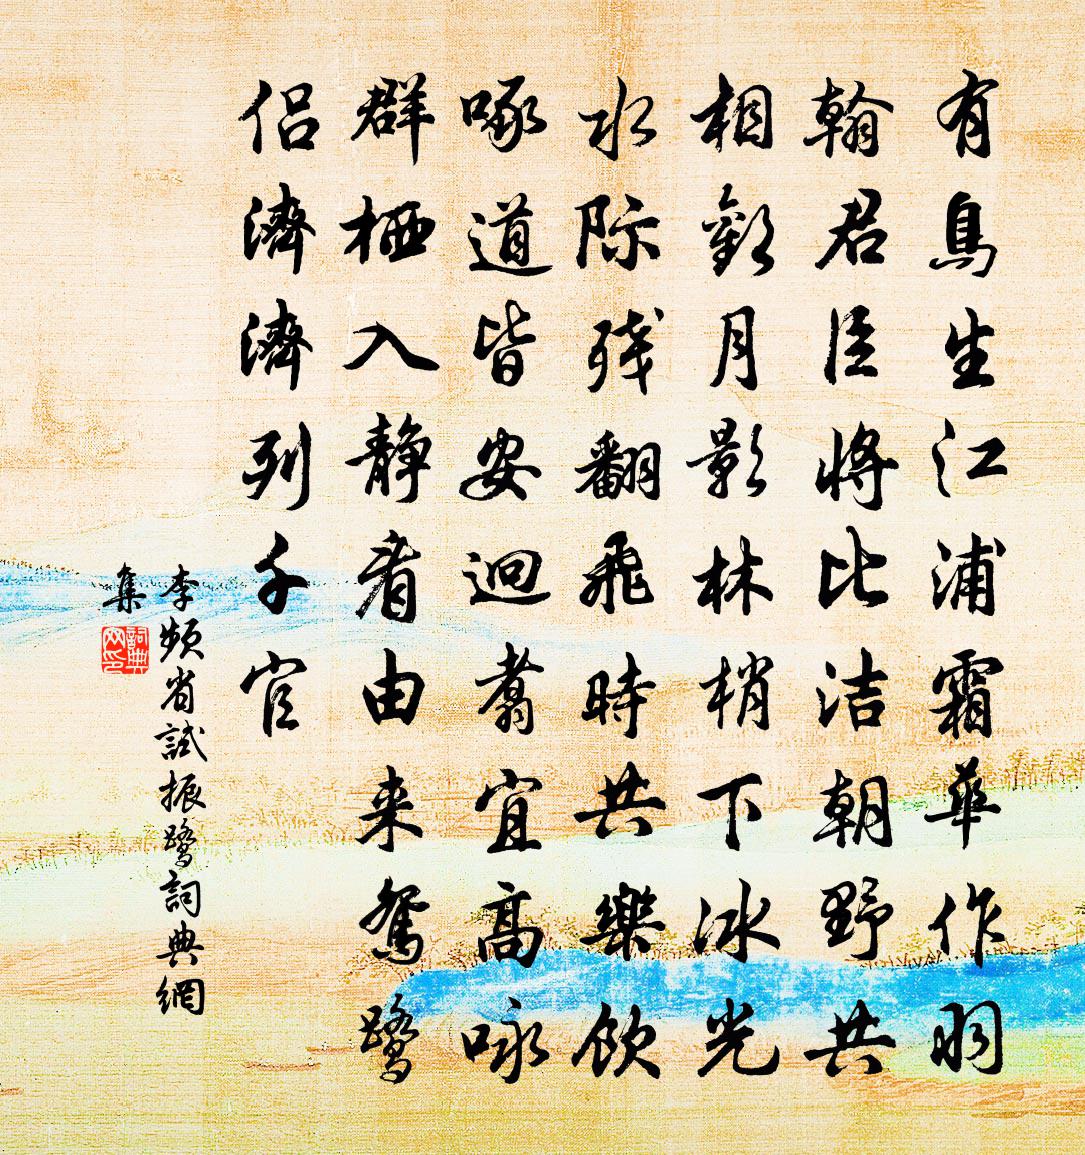 有鳥生江浦霜華作羽
翰君臣將比洁朝野共
相歡月影林梢下冰光
水际残翻飛時共樂飲
啄道皆安迥翥宜高咏
群栖入靜看由来鴛鹭
侣濟濟列千官
李频省試振鹭詞典網
集
詞典網印